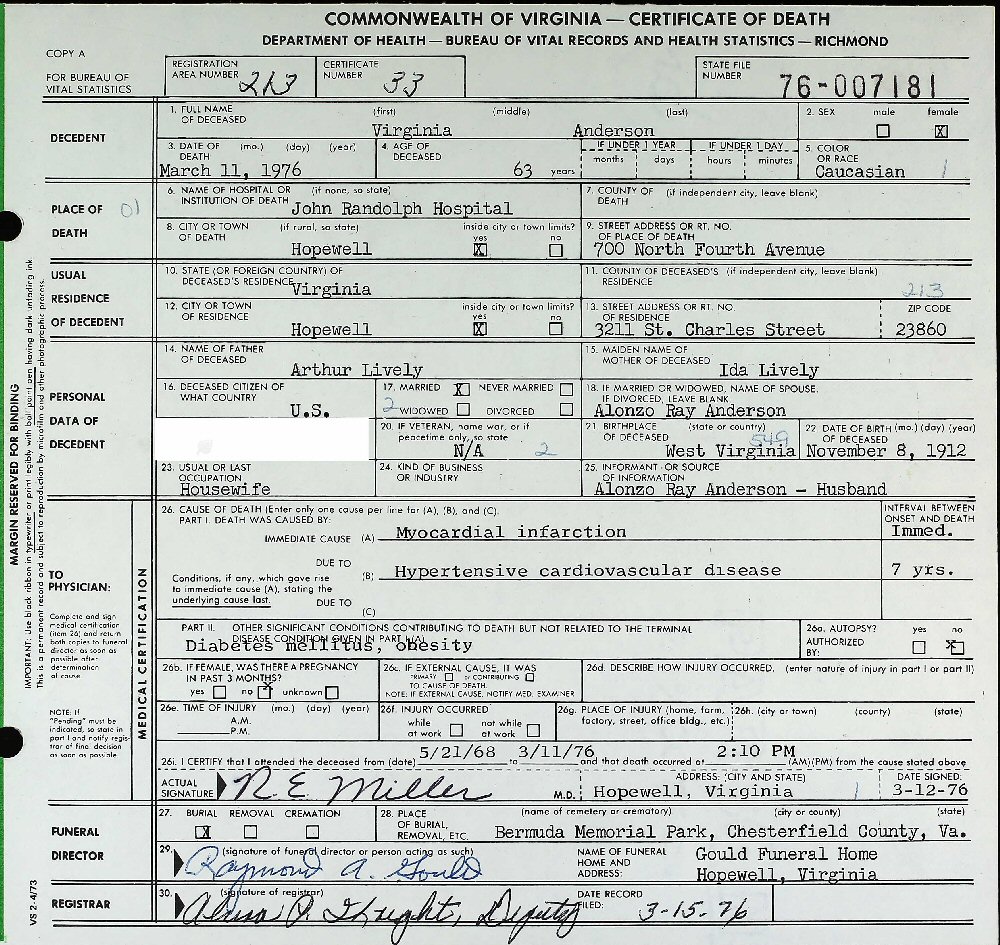 COMMONWEALTH OF VIRGINIA — CERTIFICATE OF DEATH
DEPARTMENT OF HEALTH — BUREAU OF VITAL RECORDS AND HEALTH STATISTICS — RICHMOND
COPY A
FOR BUREAU OF VITAL STATISTICS
REGISTRATION AREA NUMBER 213
CERTIFICATE NUMBER 33
STATE FILE NUMBER 76-007181
DECEDENT
1. FULL NAME OF DECEASED (first) (middle) (last)
Virginia Anderson
2. SEX male female X
3. DATE OF DEATH (mo.) (day) (year)
March 11, 1976
4. AGE OF DECEASED
63 years
IF UNDER 1 YEAR months days
IF UNDER 1 DAY hours minutes
5. COLOR OR RACE
Caucasian 1
PLACE OF DEATH 01
6. NAME OF HOSPITAL OR INSTITUTION OF DEATH (if none, so state)
John Randolph Hospital
7. COUNTY OF DEATH (if independent city, leave blank)
8. CITY OR TOWN OF DEATH (if rural, so state) inside city or town limits? yes X no
Hopewell
9. STREET ADDRESS OR RT. NO. OF PLACE OF DEATH
700 North Fourth Avenue
USUAL RESIDENCE OF DECEDENT
10. STATE (OR FOREIGN COUNTRY) OF DECEASED'S RESIDENCE
Virginia
11. COUNTY OF DECEASED'S RESIDENCE (if independent city, leave blank)
213
12. CITY OR TOWN OF RESIDENCE inside city or town limits? yes X no
Hopewell
13. STREET ADDRESS OR RT. NO. OF RESIDENCE
3211 St. Charles Street
ZIP CODE
23860
PERSONAL DATA OF DECEDENT
14. NAME OF FATHER OF DECEASED
Arthur Lively
15. MAIDEN NAME OF MOTHER OF DECEASED
Ida Lively
16. DECEASED CITIZEN OF WHAT COUNTRY
U.S.
17. MARRIED X NEVER MARRIED
2 WIDOWED DIVORCED
18. IF MARRIED OR WIDOWED, NAME OF SPOUSE. IF DIVORCED, LEAVE BLANK
Alonzo Ray Anderson
20. IF VETERAN, name war, or if peacetime only, so state
N/A 2
21. BIRTHPLACE OF DECEASED (state or country)
549
West Virginia
22. DATE OF BIRTH (mo.) (day) (year) OF DECEASED
November 8, 1912
23. USUAL OR LAST OCCUPATION
Housewife
24. KIND OF BUSINESS OR INDUSTRY
25. INFORMANT OR SOURCE OF INFORMATION
Alonzo Ray Anderson - Husband
TO PHYSICIAN:
Complete and sign medical certification (item 26) and return both copies to funeral director as soon as possible after determination of cause.
NOTE: If "Pending" must be indicated, so state in part I and notify registrar of final decision as soon as possible
MEDICAL CERTIFICATION
26. CAUSE OF DEATH (Enter only one cause per line for (A), (B), and (C).
PART I. DEATH WAS CAUSED BY:
INTERVAL BETWEEN ONSET AND DEATH
IMMEDIATE CAUSE (A) Myocardial infarction Immed.
Conditions, if any, which gave rise to immediate cause (A), stating the underlying cause last.
DUE TO (B) Hypertensive cardiovascular disease 7 yrs.
DUE TO (C)
PART II. OTHER SIGNIFICANT CONDITIONS CONTRIBUTING TO DEATH BUT NOT RELATED TO THE TERMINAL DISEASE CONDITION GIVEN IN PART I(A)
Diabetes mellitus, obesity
26a. AUTOPSY? AUTHORIZED BY: yes no X
26b. IF FEMALE, WAS THERE A PREGNANCY IN PAST 3 MONTHS?
yes no X unknown
26c. IF EXTERNAL CAUSE, IT WAS PRIMARY or CONTRIBUTING TO CAUSE OF DEATH.
NOTE: IF EXTERNAL CAUSE, NOTIFY MED. EXAMINER
26d. DESCRIBE HOW INJURY OCCURRED. (enter nature of injury in part I or part II)
26e. TIME OF INJURY (mo.) (day) (year)
A.M.
P.M.
26f. INJURY OCCURRED
while at work not while at work
26g. PLACE OF INJURY (home, farm, factory, street, office bldg., etc.)
26h. (city or town) (county) (state)
26i. I CERTIFY that I attended the deceased from (date) 5/21/68 to 3/11/76 and that death occurred at 2:10 PM (AM)(PM) from the cause stated above
ACTUAL SIGNATURE R E Miller M.D.
ADDRESS: (CITY AND STATE)
Hopewell, Virginia 1
DATE SIGNED:
3-12-76
FUNERAL DIRECTOR
27. BURIAL REMOVAL CREMATION
X
28. PLACE OF BURIAL, REMOVAL, ETC. (name of cemetery or crematory) (city or county) (state)
Bermuda Memorial Park, Chesterfield County, Va.
29. (signature of funeral director or person acting as such)
Raymond A. Gould
NAME OF FUNERAL HOME AND ADDRESS:
Gould Funeral Home
Hopewell, Virginia
REGISTRAR
30. (signature of registrar)
Deputy
DATE RECORD FILED:
3-15-76
MARGIN RESERVED FOR BINDING
IMPORTANT: Use black ribbon in typewriter or print legibly with ball point pen having dark unfading ink
This is a permanent record and subject to reproduction by microfilm and other photographic process.
VS 2-4/73